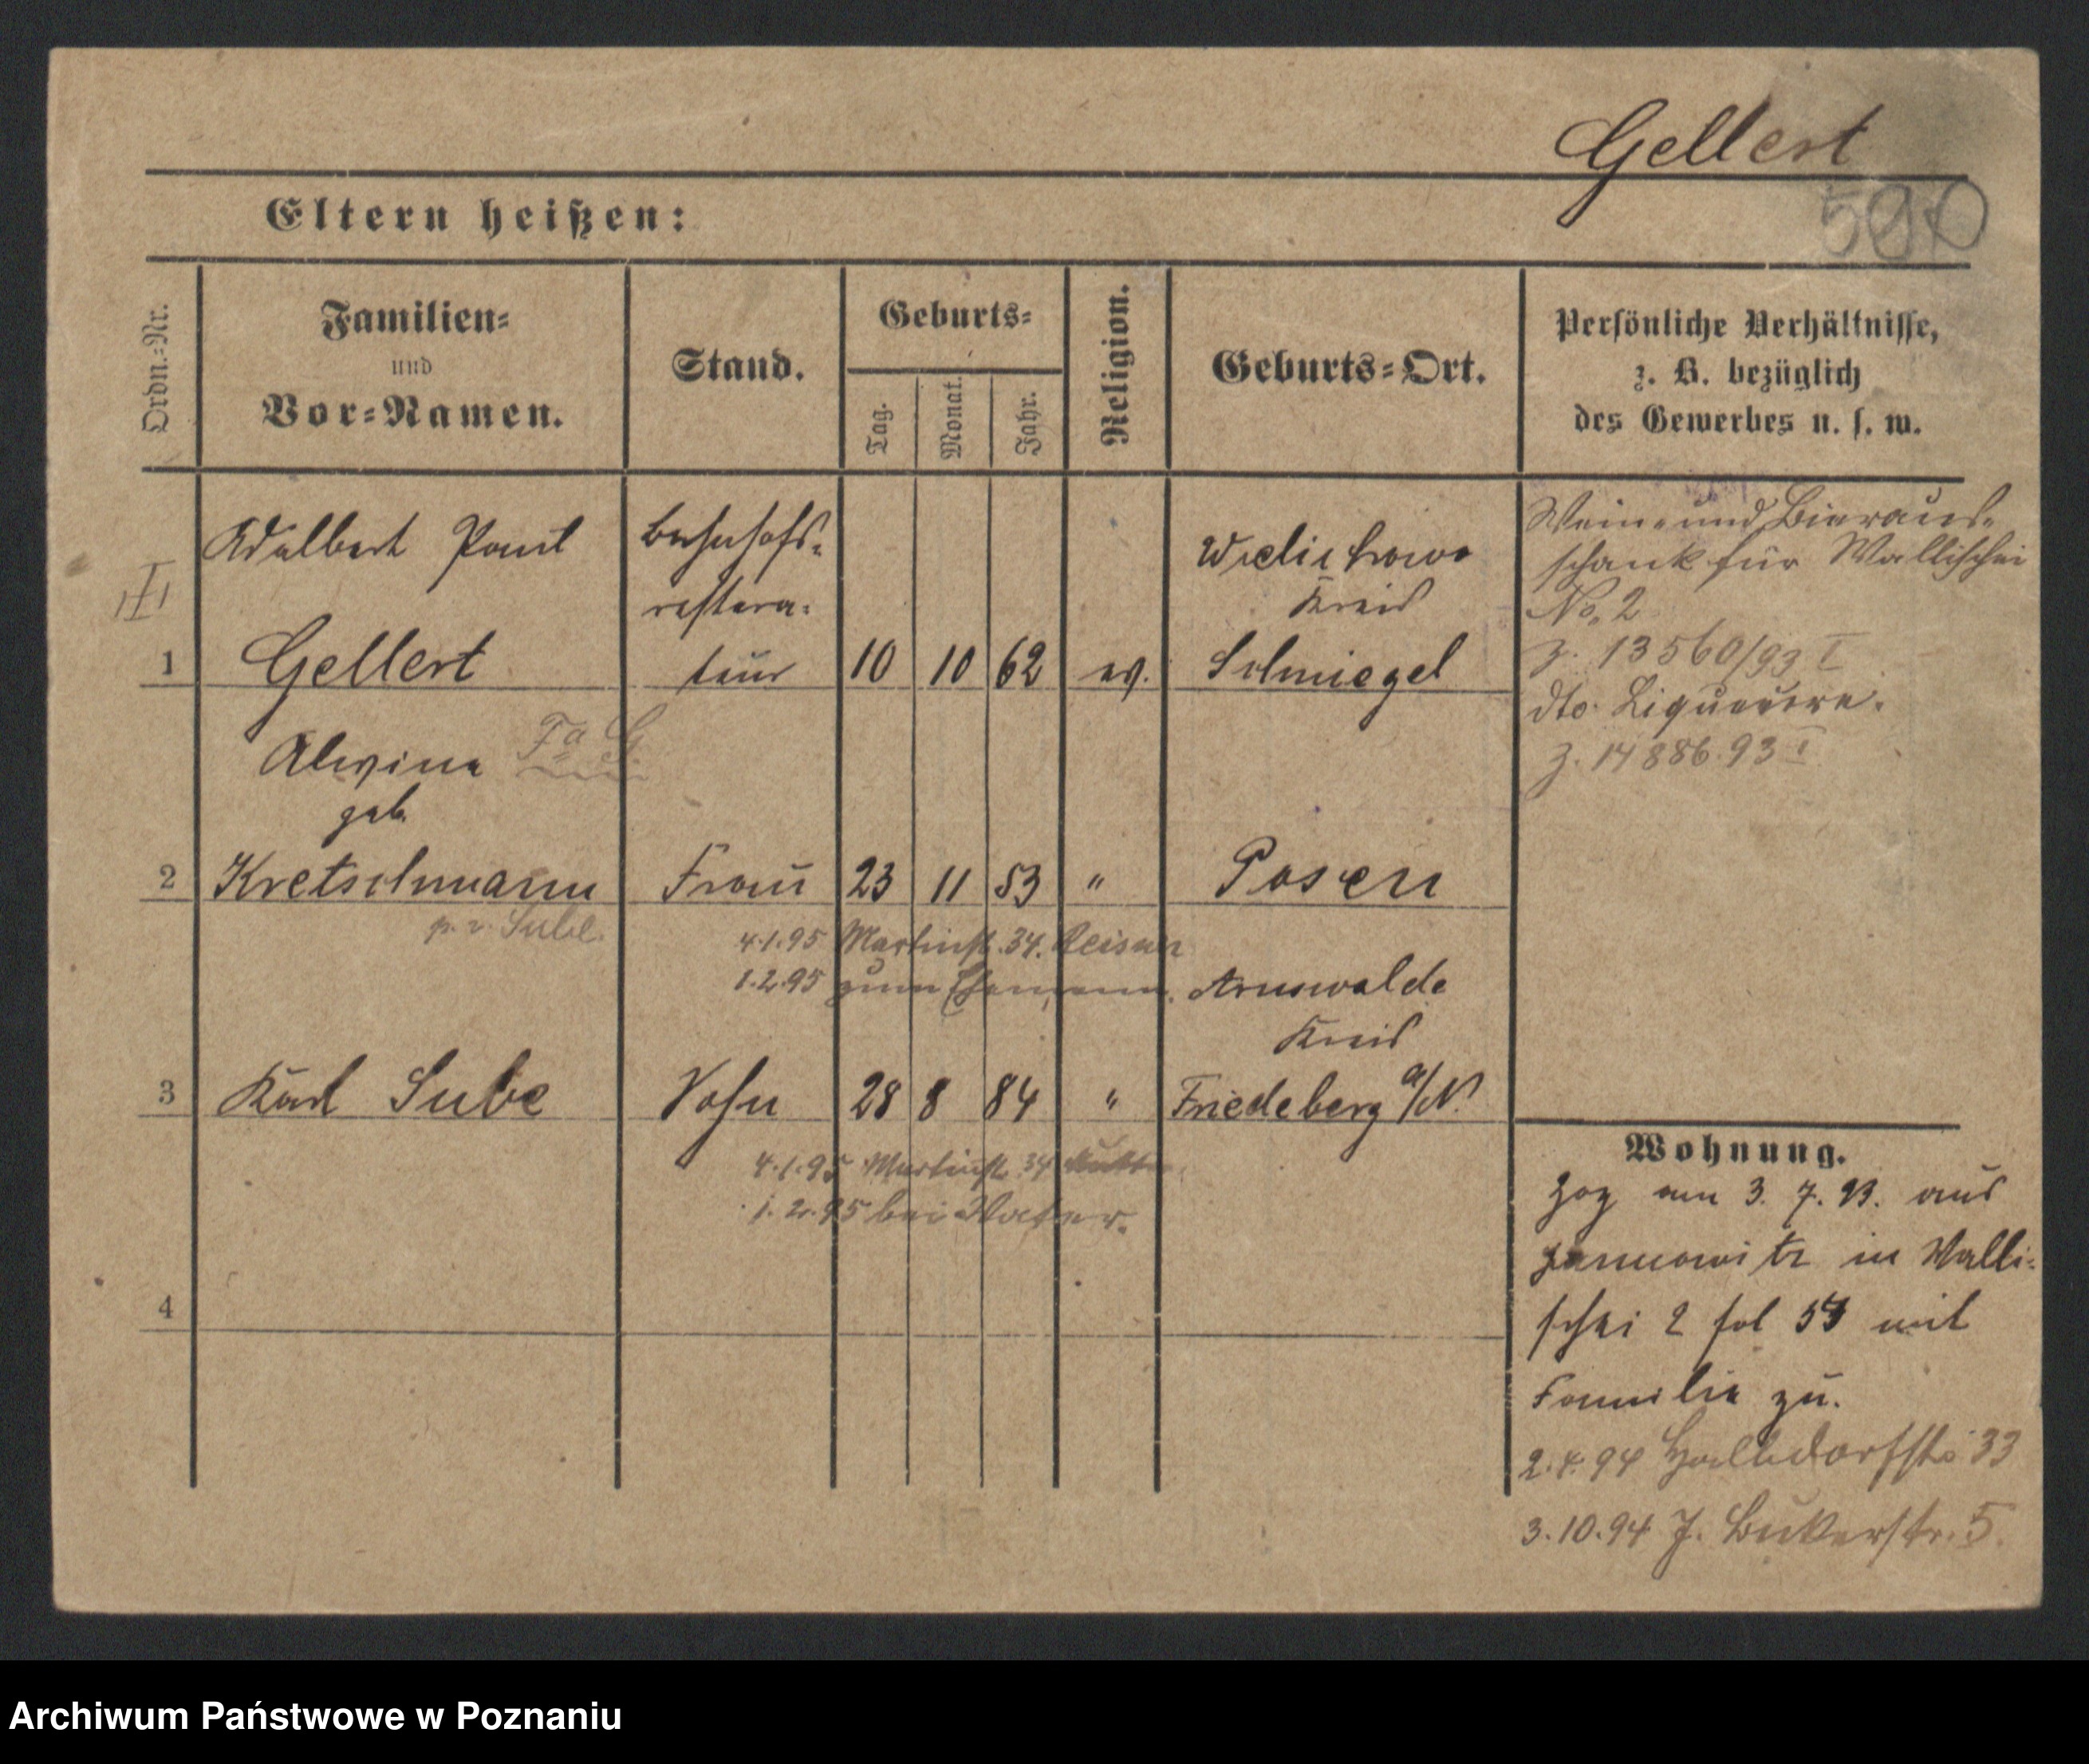 Gellert
Eltern heißen:
Ordn.-Nr.
Familien-
und
Vor-Namen.
Stand.
Geburts-
Tag.
Monat.
Jahr.
Religion.
Geburts-Ort.
Persönliche Verhältnisse,
z. B. bezüglich
des Gewerbes u. s. w.
Adalbert Paul
Gellert
Bahnhofs-
restaura-
teur
1
10 10 62 ev.
Wielichowo
Kreis
Schmiegel
Wein- und Bieraus-
schank für Wallischei
No. 2
z. 13560/93 I
dto. Liqueure.
z. 14886.93 I
Alwine
geb.
2 Kretschmann Frau 23 11 53 " Posen
p. v. Sube.
4.1.95 Martinst. 34.
1.2.95 zum Ehemann.
Arnswalde
Kreis
3 Karl Sube Sohn 28 8 84 " Friedeberg a/N.
4.1.95 Martinst. 34
1.2.95 bei Vater.
4
Wohnung.
Zog am 3. 7. 93. aus
Jannowitz in Walli-
schei 2 fol mit
Familie zu.
2.4.94 Halbdorfstr 33
3.10.94 J. Bukerstr. 5.
Archiwum Państwowe w Poznaniu